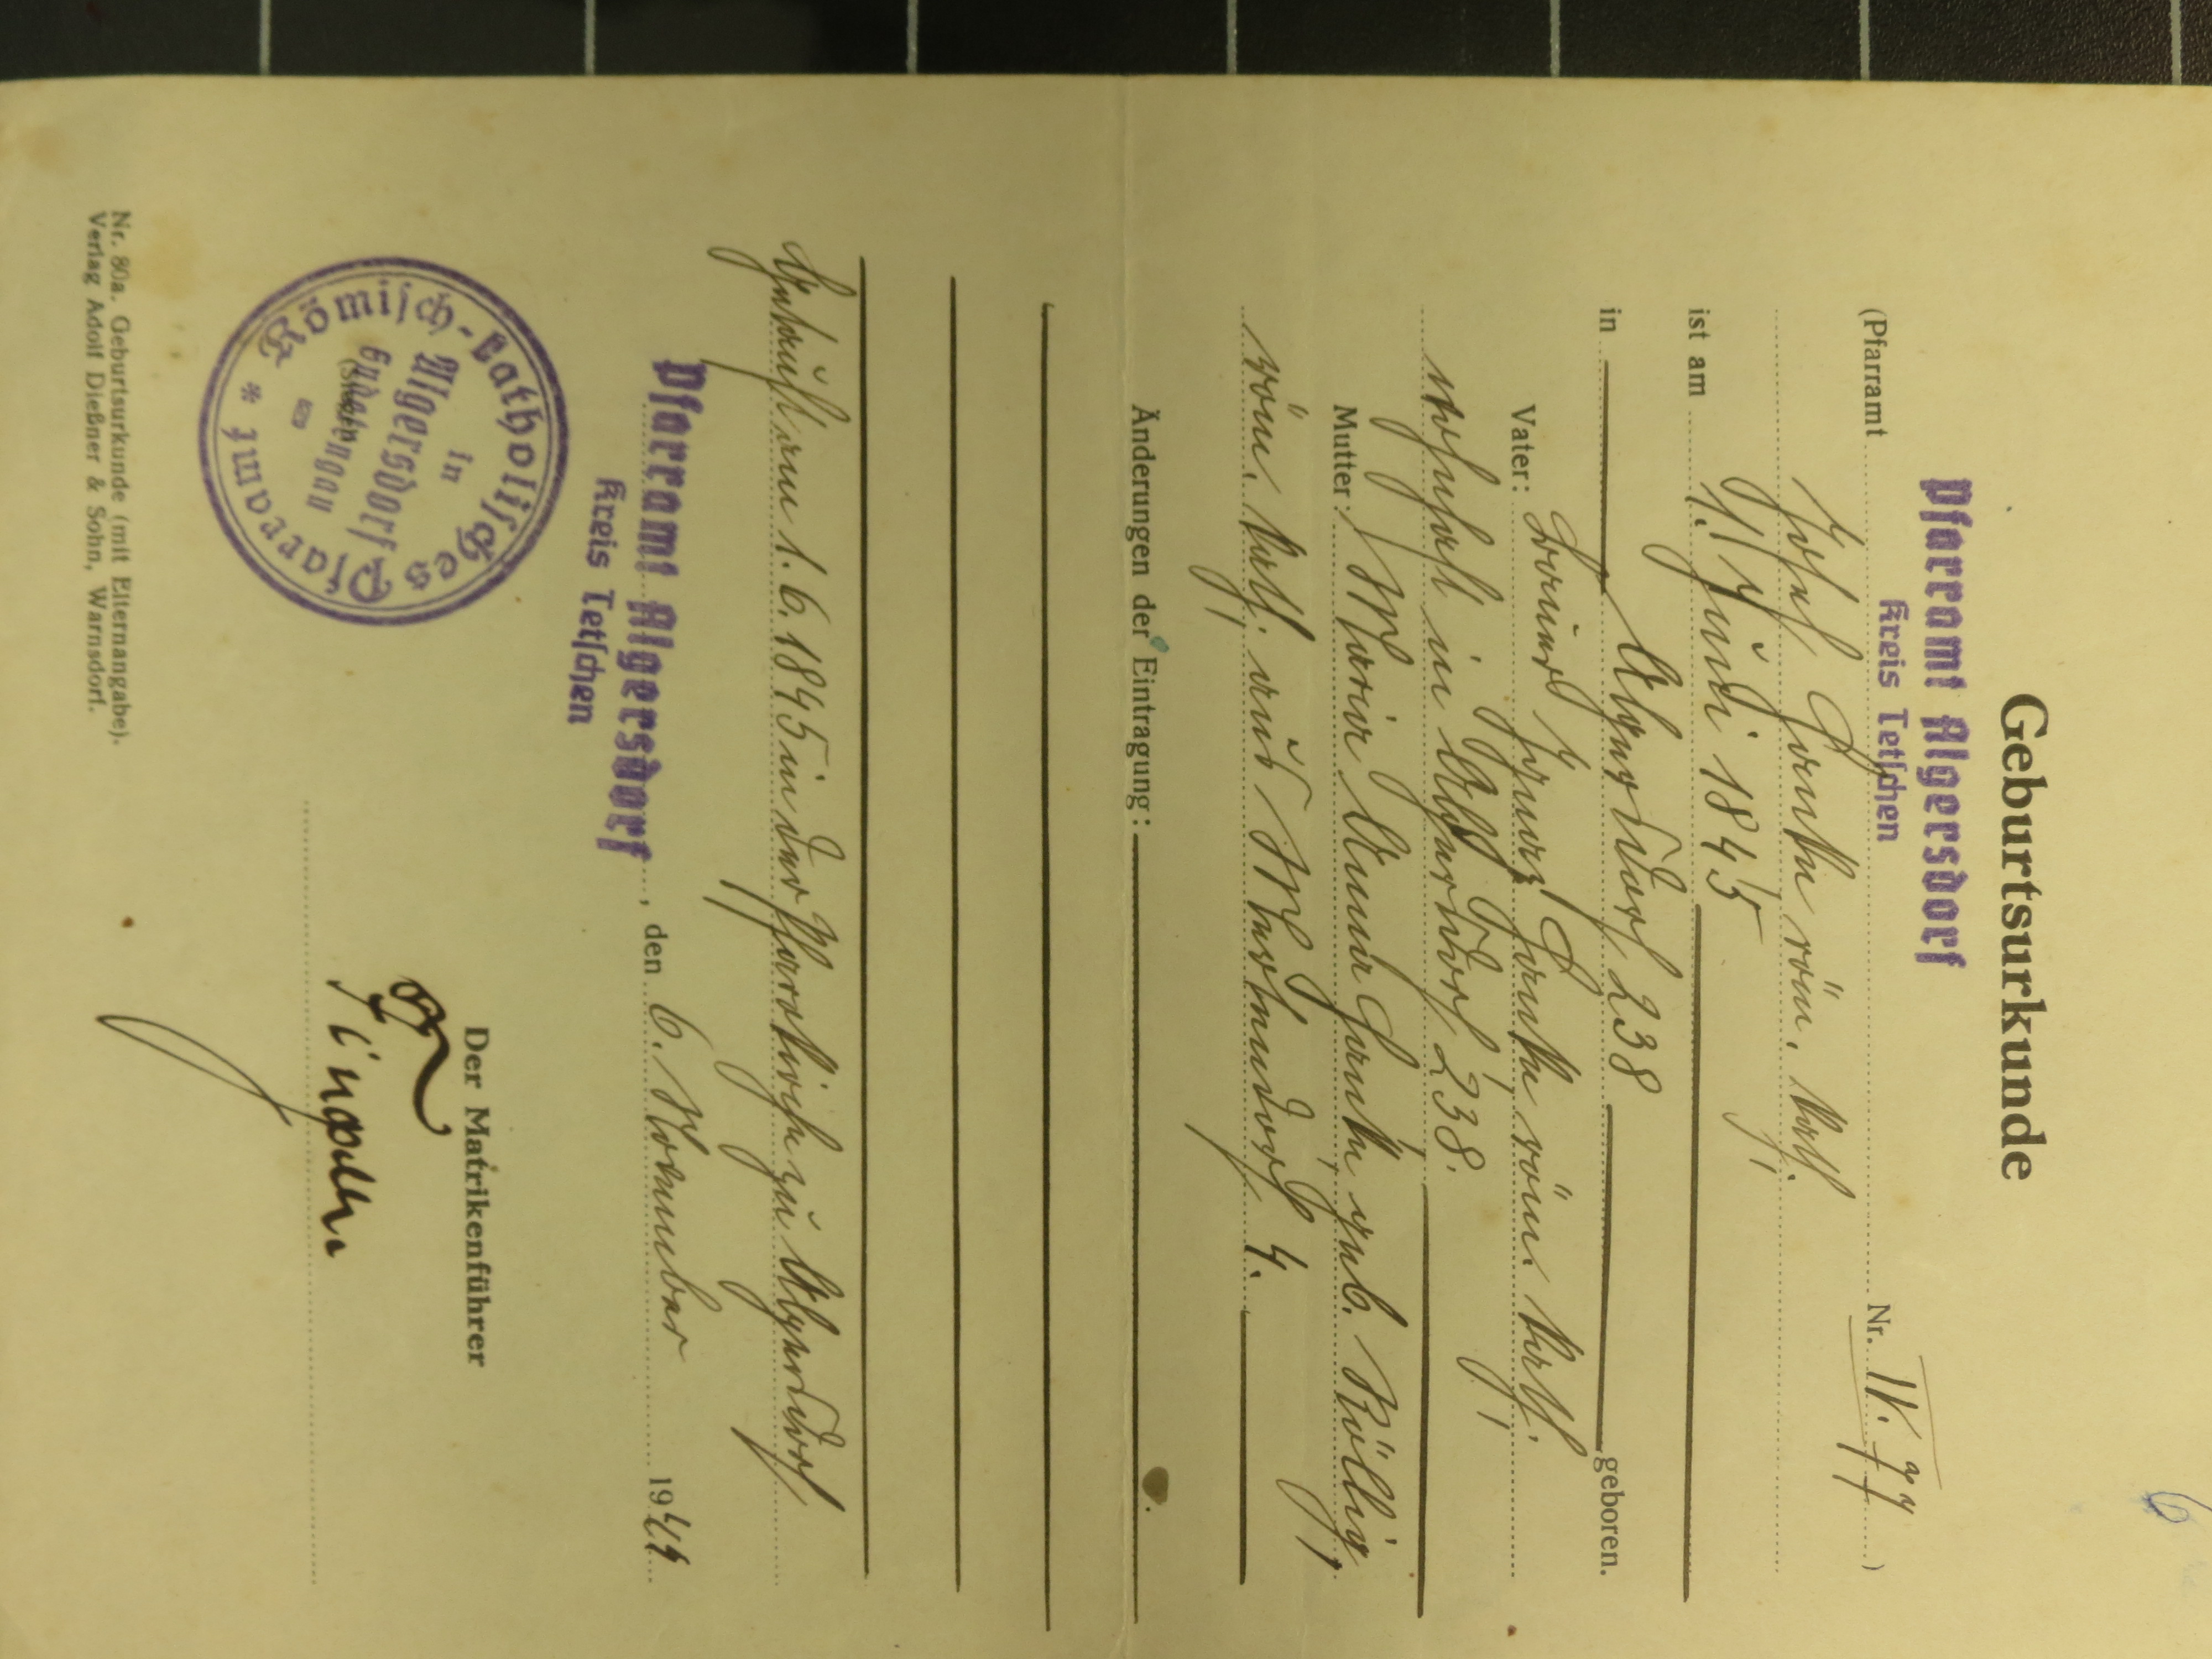 6
Geburtsurkunde
Pfarramt Algersdorf
Kreis Tetschen
(Pfarramt Nr. IV. 77)
Josef Hanke, röm. kath;
ist am 1. Juni 1845
in Algersdorf 238 geboren.
Vater: Bauer Ignaz Hanke, röm. kath;
wohnhaft in Algersdorf 238;
Mutter: Maria Anna Hanke, geb. Röllig,
röm. kath; aus Mertendorf 4.
Änderungen der Eintragung:
Getauft am 1. 6. 1845 in der Pfarrkirche zu Algersdorf
Pfarramt Algersdorf
Kreis Tetschen
, den 6. November 1941
Römisch-katholisches Pfarramt *
in
Algersdorf
Sudetengau
(Siegel)
Der Matrikenführer
Nr. 80a. Geburtsurkunde (mit Elternangabe).
Verlag Adolf Dießner & Sohn, Warnsdorf.